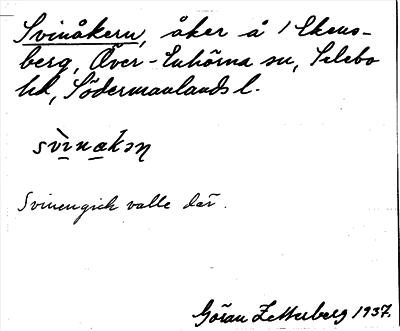 Svinåkern, åker å 1 Ekens-
berg, Över-Enhörna sn, Selebo
hd, Södermanlands l.
svìnakən
Svinen gick valle där.
Göran Zetterberg 1937.